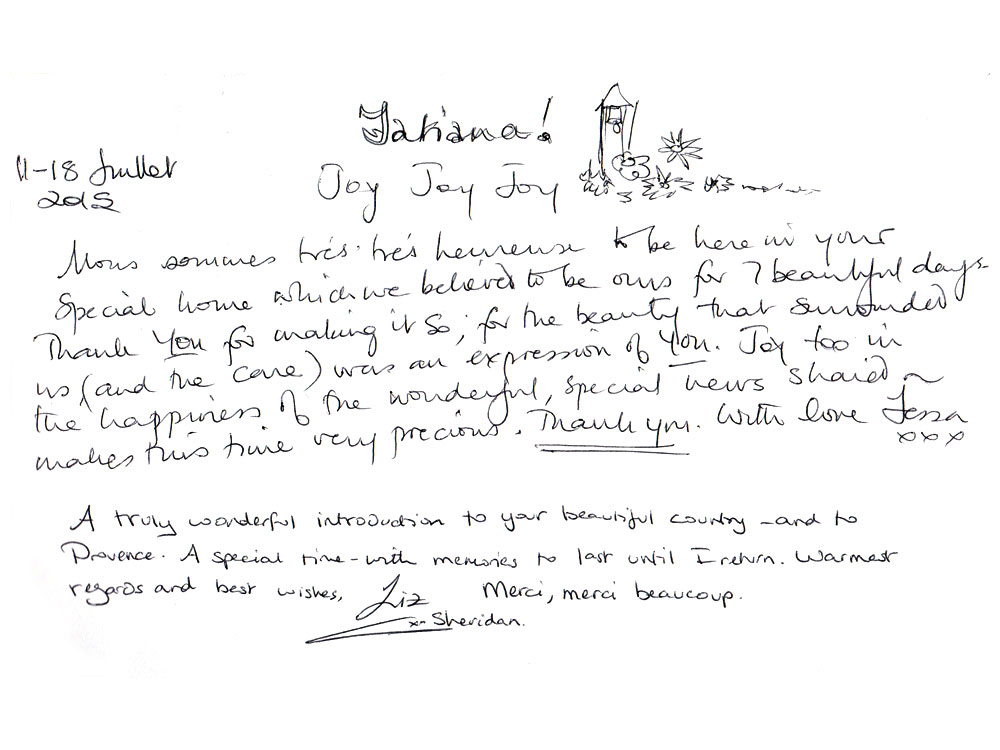 Tatiana!
11-18 Juillet
2015
Joy Joy Joy
Nous sommes très très heureuse to be here in your
special home which we believed to be ours for 7 beautiful days.
Thank You for making it so; for the beauty that surrounded
us (and the care) was an expression of You. Joy too in
the happiness of the wonderful, special news shared ~
makes this time very precious. Thank you. With love Jessa
xxx
A truly wonderful introduction to your beautiful country - and to
Provence. A special time - with memories to last until I return. Warmest
regards and best wishes, Liz Merci, merci beaucoup.
Sheridan.